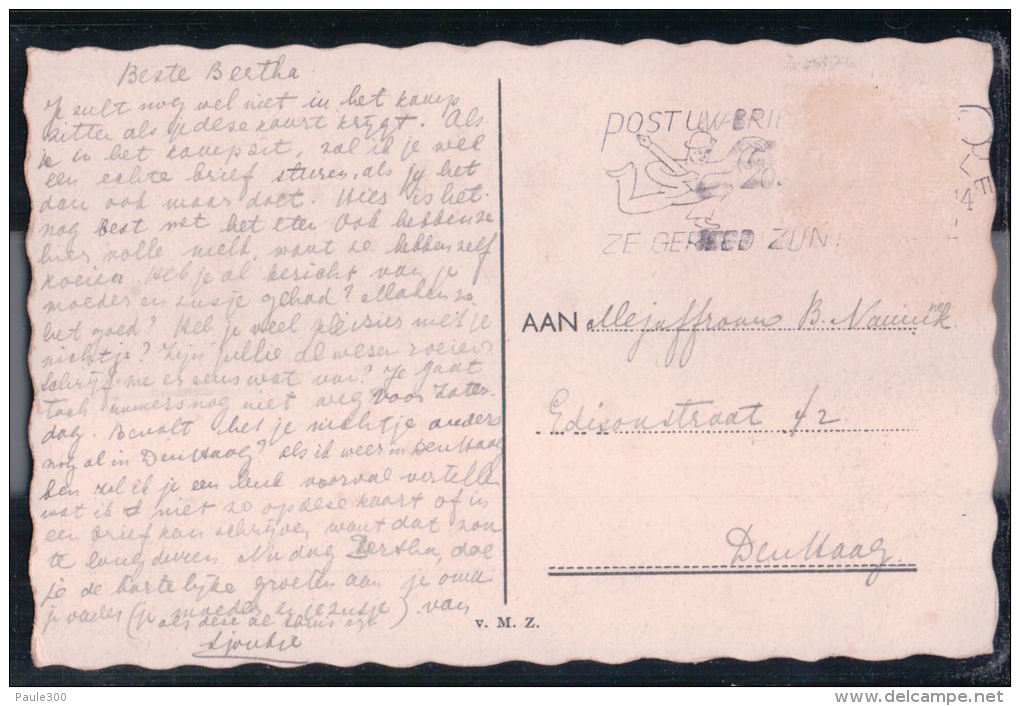 Beste Bertha
Je zult nog wel niet in het kamp
zitten als je deze kaart krijgt. Als
je in het kamp zit, zal ik je wel
een echte brief sturen, als jy het
dan ook maar doet. Hies is het
nog best met het eten. Ook hebben ze
hier volle melk, want ze hebben zelf
koeien. Heb je al bericht van je
moeder en zusje gehad? Maken ze
het goed? Heb je veel pleizier met je
nichtje? Zijn jullie al wesen roeien
Schrijf me er eens wat van? Je gaat
toch immers nog niet weg voor Zater-
dag. Bevalt het je nichtje anders
nog al in Den Haag? Als ik weer in Den Haag
ben zal ik je een leuk voorval vertellen
wat ik niet zo op deze kaart of in
een brief kan schrijven, want dat zou
te lang duren. Nu dag Bertha, doe
je de hartelijke groeten aan je oma
je vader (je moeder en je zusje) van
als deze al thuis zijn
Sjoukje
POST UW BRIE
ZE GEREED ZIJN!
AAN Mejuffrouw B. Nannink
Edisonstraat 42
Den Haag.
v. M. Z.
Paule300
http://www.delcampe.net